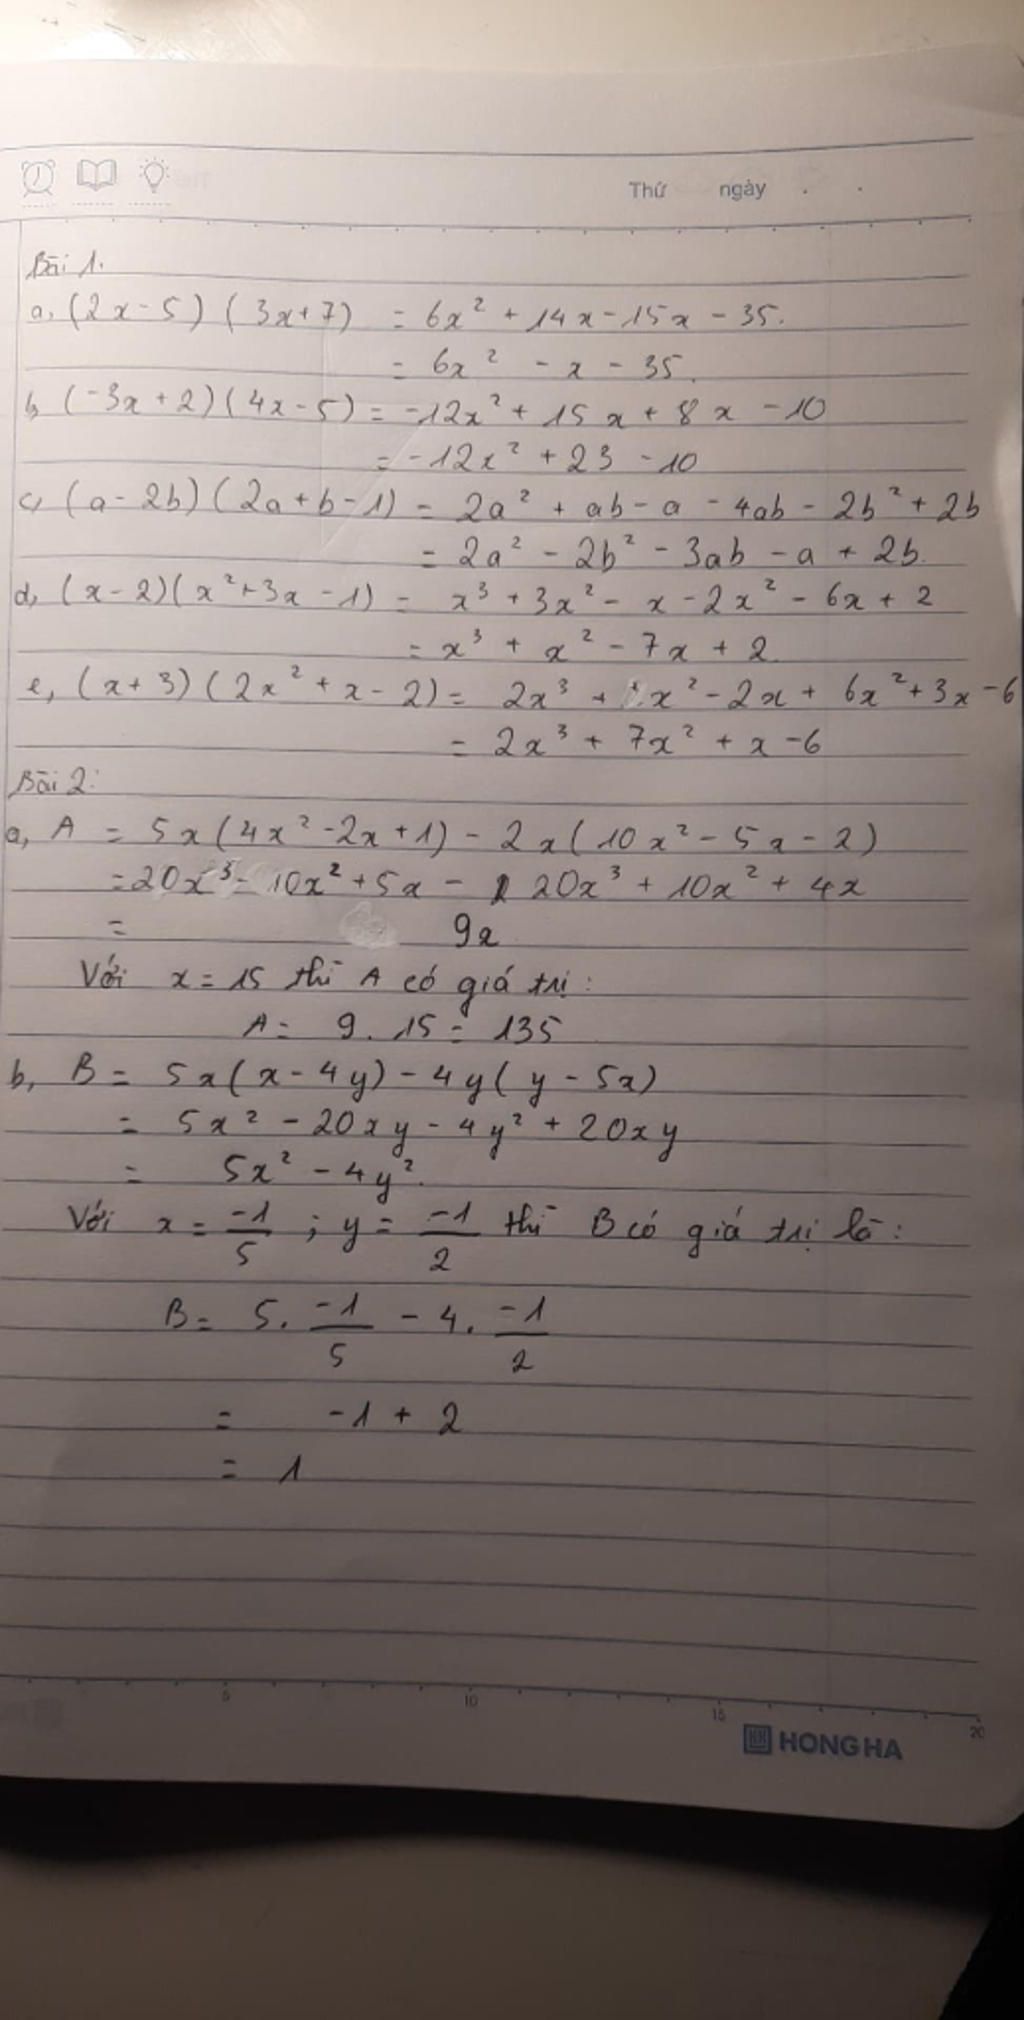 Thứ ngày . .
Bài 1.
a, (2x - 5) (3x + 7) = 6x² + 14x - 15x - 35.
= 6x² - x - 35.
b, (-3x + 2)(4x - 5) = -12x² + 15x + 8x - 10
= -12x² + 23 - 10
c, (a - 2b)(2a + b - 1) = 2a² + ab - a - 4ab - 2b² + 2b
= 2a² - 2b² - 3ab - a + 2b.
d, (x - 2)(x² + 3x - 1) = x³ + 3x² - x - 2x² - 6x + 2
= x³ + x² - 7x + 2
e, (x + 3)(2x² + x - 2) = 2x³ + x² - 2x + 6x² + 3x - 6
= 2x³ + 7x² + x - 6
Bài 2:
a, A = 5x(4x² - 2x + 1) - 2x(10x² - 5x - 2)
= 20x³ - 10x² + 5x - 20x³ + 10x² + 4x
= 9x
Với x = 15 thì A có giá trị :
A = 9 . 15 = 135
b, B = 5x(x - 4y) - 4y(y - 5x)
= 5x² - 20xy - 4y² + 20xy
= 5x² - 4y².
Với x = -1/5 ; y = -1/2 thì B có giá trị là :
B = 5 . -1/5 - 4 . -1/2
= -1 + 2
= 1
5 10 15 20
HONG HA